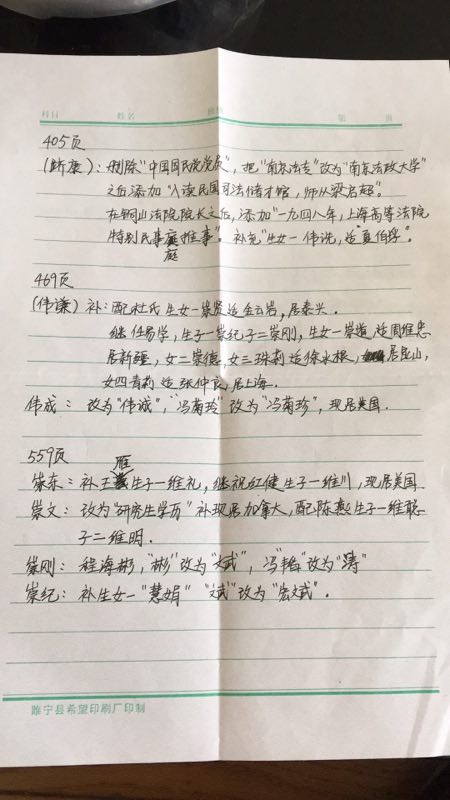 科目 姓名 第 页
405页
删除"中国国民党党员",把"南京法专"改为"南京法政大学"
之后添加"入读民国司法储才馆,师从梁启超"。
在铜山法院院长之后,添加"一九四八年,上海高等法院
特别民事庭推事"。补充"生女一伟诜,适"夏伯
庭
469页
(伟谦)补:配杜氏生女一崇贤适金云岩,居泰兴.
继任易学,生子一崇纪子二崇刚,生女一崇道适周维忠
居新疆,女二崇德,女三珠莉适徐水根,居昆山,
女四青莉适张仲良,居上海.
伟成:改为"伟诚","冯菊玲"改为"冯菊珍",现居美国.
559页
雁
崇东:补王生子一维礼,继祝红健生子一维川,现居美国
崇文:改为"研究生学历"补现居加拿大,配陈燕生子一维聪
子二维明.
崇刚:程海彬,"彬"改为"斌",冯"梅"改为"涛"
崇纪:补生女一"慧娟" "斌"改为"宏斌".
睢宁县希望印刷厂印制